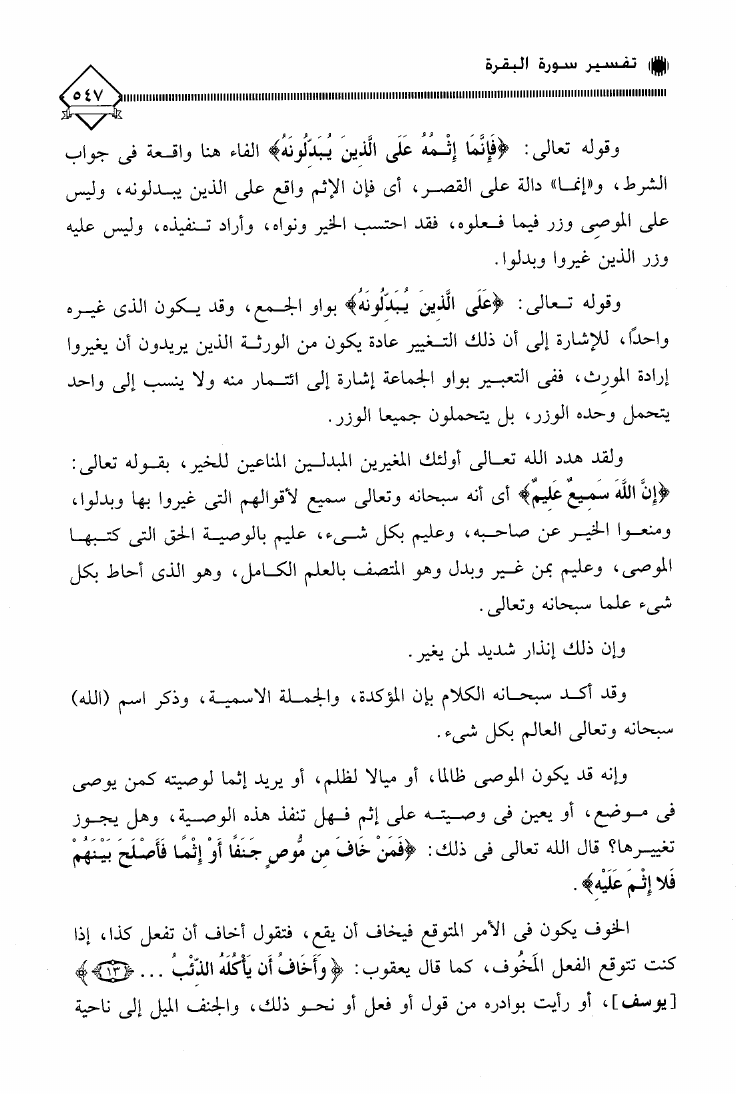 تفسير سورة البقرة
٥٤٧
وقوله تعالى: ﴿فَإِنَّمَا إِثْمُهُ عَلَى الَّذِينَ يُبَدِّلُونَهُ﴾ الفاء هنا واقعة فى جواب
الشرط، و«إنما» دالة على القصر، أى فإن الإثم واقع على الذين يبدلونه، وليس
على الموصِى وزر فيما فعلوه، فقد احتسب الخير ونواه، وأراد تنفيذه، وليس عليه
وزر الذين غيروا وبدلوا.
وقوله تعالى: ﴿عَلَى الَّذِينَ يُبَدِّلُونَهُ﴾ بواو الجمع، وقد يكون الذى غيره
واحدًا، للإشارة إلى أن ذلك التغيير عادة يكون من الورثة الذين يريدون أن يغيروا
إرادة المورِث، ففى التعبير بواو الجماعة إشارة إلى ائتمار منه ولا ينسب إلى واحد
يتحمل وحده الوزر، بل يتحملون جميعا الوزر.
ولقد هدد الله تعالى أولئك المغيرين المبدلين المناعين للخير، بقوله تعالى:
﴿إِنَّ اللَّهَ سَمِيعٌ عَلِيمٌ﴾ أى أنه سبحانه وتعالى سميع لأقوالهم التى غيروا بها وبدلوا،
ومنعوا الخير عن صاحبه، وعليم بكل شىء، عليم بالوصية الحق التى كتبها
الموصى، وعليم بمن غير وبدل وهو المتصف بالعلم الكامل، وهو الذى أحاط بكل
شىء علما سبحانه وتعالى.
وإن ذلك إنذار شديد لمن يغير.
وقد أكد سبحانه الكلام بإن المؤكدة، والجملة الاسمية، وذكر اسم (الله)
سبحانه وتعالى العالم بكل شىء.
وإنه قد يكون الموصى ظالما، أو ميالا لظلم، أو يريد إثما لوصيته كمن يوصى
فى موضع، أو يعين فى وصيته على إثم فهل تنفذ هذه الوصية، وهل يجوز
تغييرها؟ قال الله تعالى فى ذلك: ﴿فَمَنْ خَافَ مِن مُّوصٍ جَنَفًا أَوْ إِثْمًا فَأَصْلَحَ بَيْنَهُمْ
فَلا إِثْمَ عَلَيْهِ﴾.
الخوف يكون فى الأمر المتوقع فيخاف أن يقع، فتقول أخاف أن تفعل كذا، إذا
كنت تتوقع الفعل المَخُوف، كما قال يعقوب: ﴿وَأَخَافُ أَن يَأْكُلَهُ الذِّئْبُ ... ﴿١٣﴾﴾
[يوسف]، أو رأيت بوادره من قول أو فعل أو نحو ذلك، والجنف الميل إلى ناحية